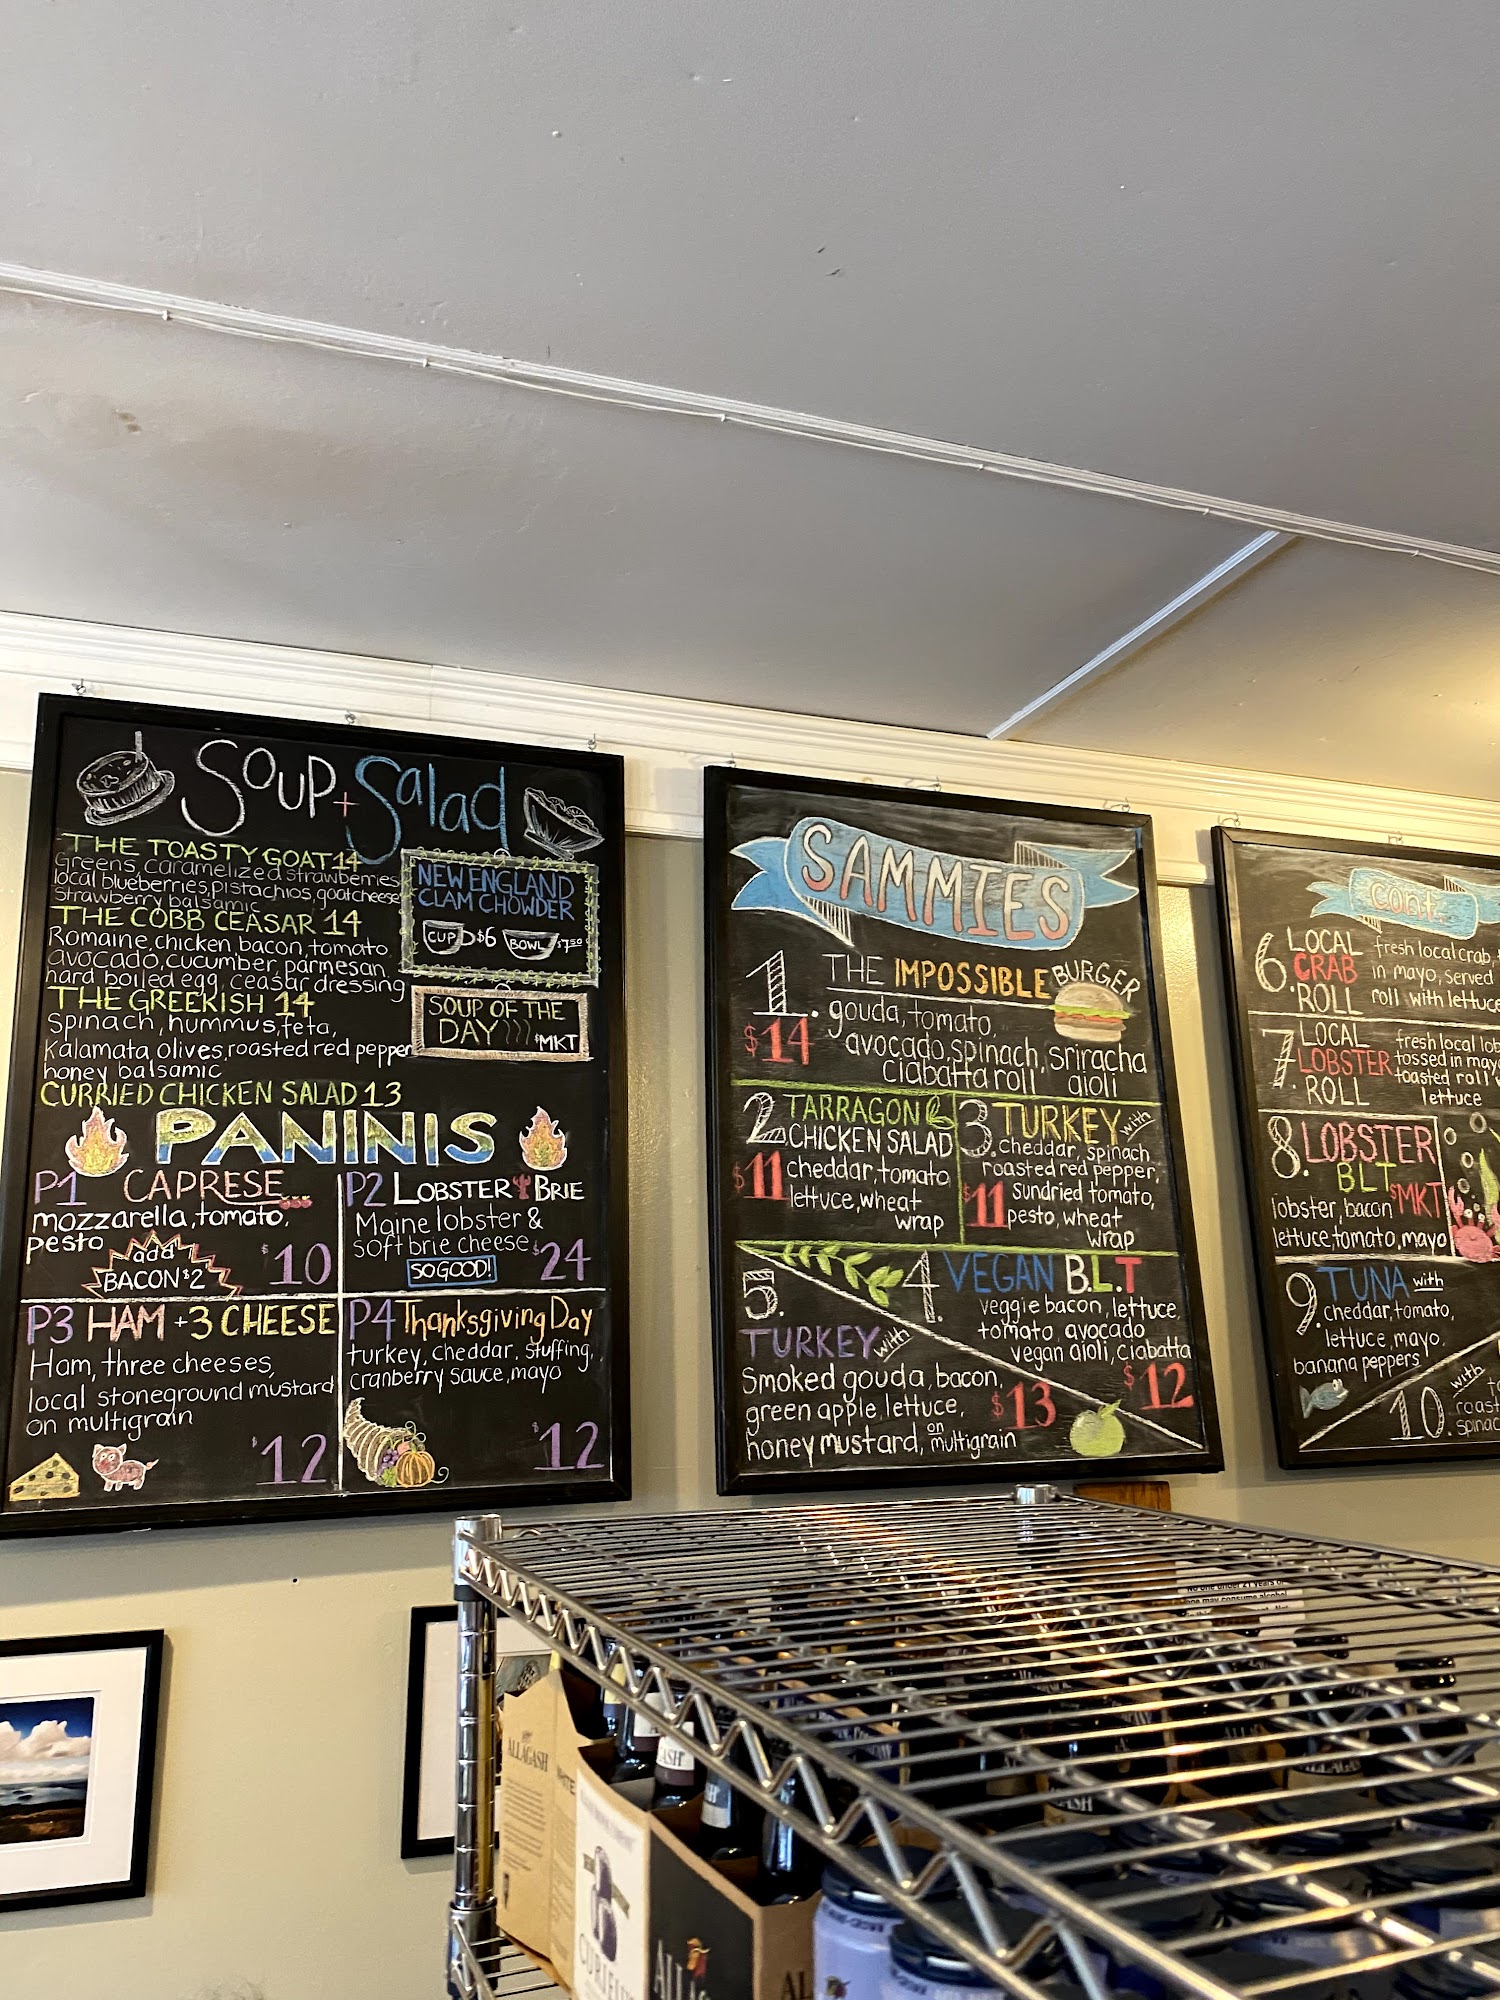 SOUP + Salad
THE TOASTY GOAT 14
Greens, caramelized strawberries
local blueberries, pistachios, goatcheese
strawberry balsamic
THE COBB CEASAR 14
Romaine, chicken, bacon, tomato
avocado, cucumber, parmesan
hard boiled egg, ceasar dressing
THE GREEKISH 14
Spinach, hummus, feta,
Kalamata olives, roasted red pepper
honey balsamic
CURRIED CHICKEN SALAD 13
NEW ENGLAND
CLAM CHOWDER
CUP $6 BOWL $7.50
SOUP OF THE
DAY $MKT
PANINIS
P1 CAPRESE...
mozzarella, tomato,
pesto
add
BACON $2
$10
P2 LOBSTER BRIE
Maine lobster &
soft brie cheese
SO GOOD!
$24
P3 HAM + 3 CHEESE
Ham, three cheeses,
local stoneground mustard
on multigrain
$12
P4 Thanksgiving Day
turkey, cheddar, stuffing,
cranberry sauce, mayo
$12
SAMMIES
1. THE IMPOSSIBLE BURGER
$14
gouda, tomato,
avocado, spinach, sriracha
ciabatta roll aioli
2 TARRAGON
CHICKEN SALAD
$11
cheddar, tomato
lettuce, wheat
wrap
3. TURKEY with
cheddar, spinach
roasted red pepper,
sundried tomato,
$11 pesto, wheat
wrap
4. VEGAN B.L.T
veggie bacon, lettuce,
tomato, avocado
vegan aioli, ciabatta
$12
5.
TURKEY with
Smoked gouda, bacon,
green apple, lettuce,
honey mustard, on multigrain
$13
cont.
6. LOCAL
CRAB
ROLL
fresh local crab,
in mayo, served
roll with lettuce
7. LOCAL
LOBSTER
ROLL
fresh local
tossed in
toasted roll
lettuce
8. LOBSTER
BLT
$MKT
lobster, bacon
lettuce, tomato, mayo
9. TUNA with
cheddar, tomato,
lettuce, mayo,
banana peppers
10. with
roast
No one under 21 years of
age may consume alcohol
ALLAGASH
WHITE